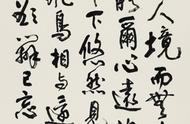 人境而無
能爾心遠
下悠然見
飛鳥相與還
欲辯已忘